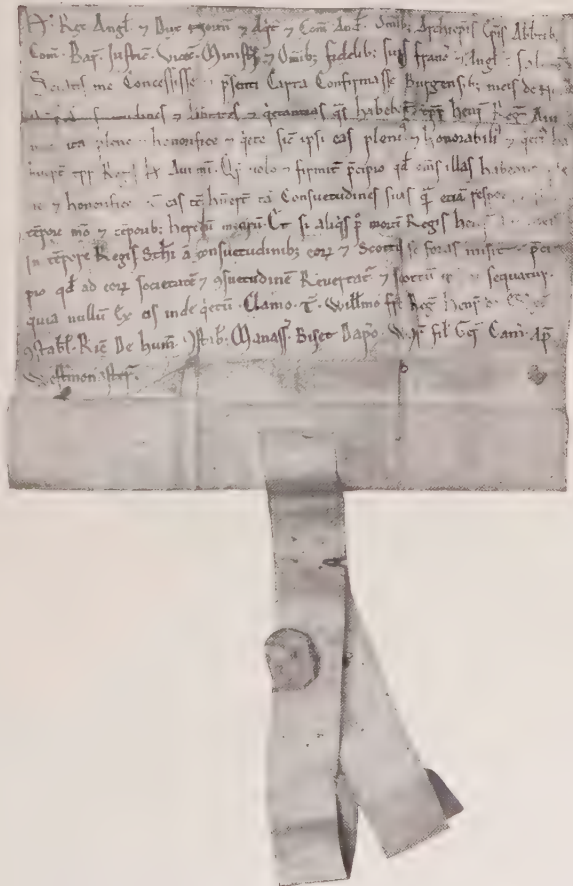 H· Rex Angl̄ ⁊ Dux Norm̄ ⁊ Aq̄t ⁊ Com̄ And̄ Om̄ib; Archiep̄is Ep̄is Abb̄tib;
Com̄· Bar̄· Justic̄· Vicec̄· Ministr̄ ⁊ Om̄ib; fidelib; suis franc̄ ⁊ Angl̄· Sal
Sciatis me Concessisse p̄senti Carta Confirmasse Burgensib; meis de
⁊ libertates ⁊ q̄etantias q̄s habebant tp̄r Henr̄ Reg̃ Aui
ita plene honorifice ⁊ q̄ete sic̄ ipsi eas pleni⁹ ⁊ honorabili⁹ ⁊ q̄eti⁹
huer̄nt tp̄r Reg̃ H̄ Aui mī· Q̄re uolo ⁊ firmit̄ p̄cipio qd̄ om̄s illas habeant
⁊ honorifice eas tc̄ hūernt tā Consuetudines suas q̄
tēpore mō ⁊ tēporib; heredū meorū· Et si aliq̄s p̄ mortē Regis Henr̄
In tēpore Regis Steph̄i ā consuetudinib; eor̄ ⁊ Scottis se foras misit p̄ci
pio qd̄ ad eor̄ societatē ⁊ ɔsuetudinē Reuertat̄ ⁊ scottū sequatur·
quia nullū Ex eis inde q̄etū· Clamo· T̄· Willmo fr̄e Reg̃ Henr̄
ɔstabl̄· Ric̄ De hum̄· ɔstab̄· Manass̄· Biset Dap̄o· War̄ fil̄ Ger̄ Cam̄· Ap̄
Westmonast̄·